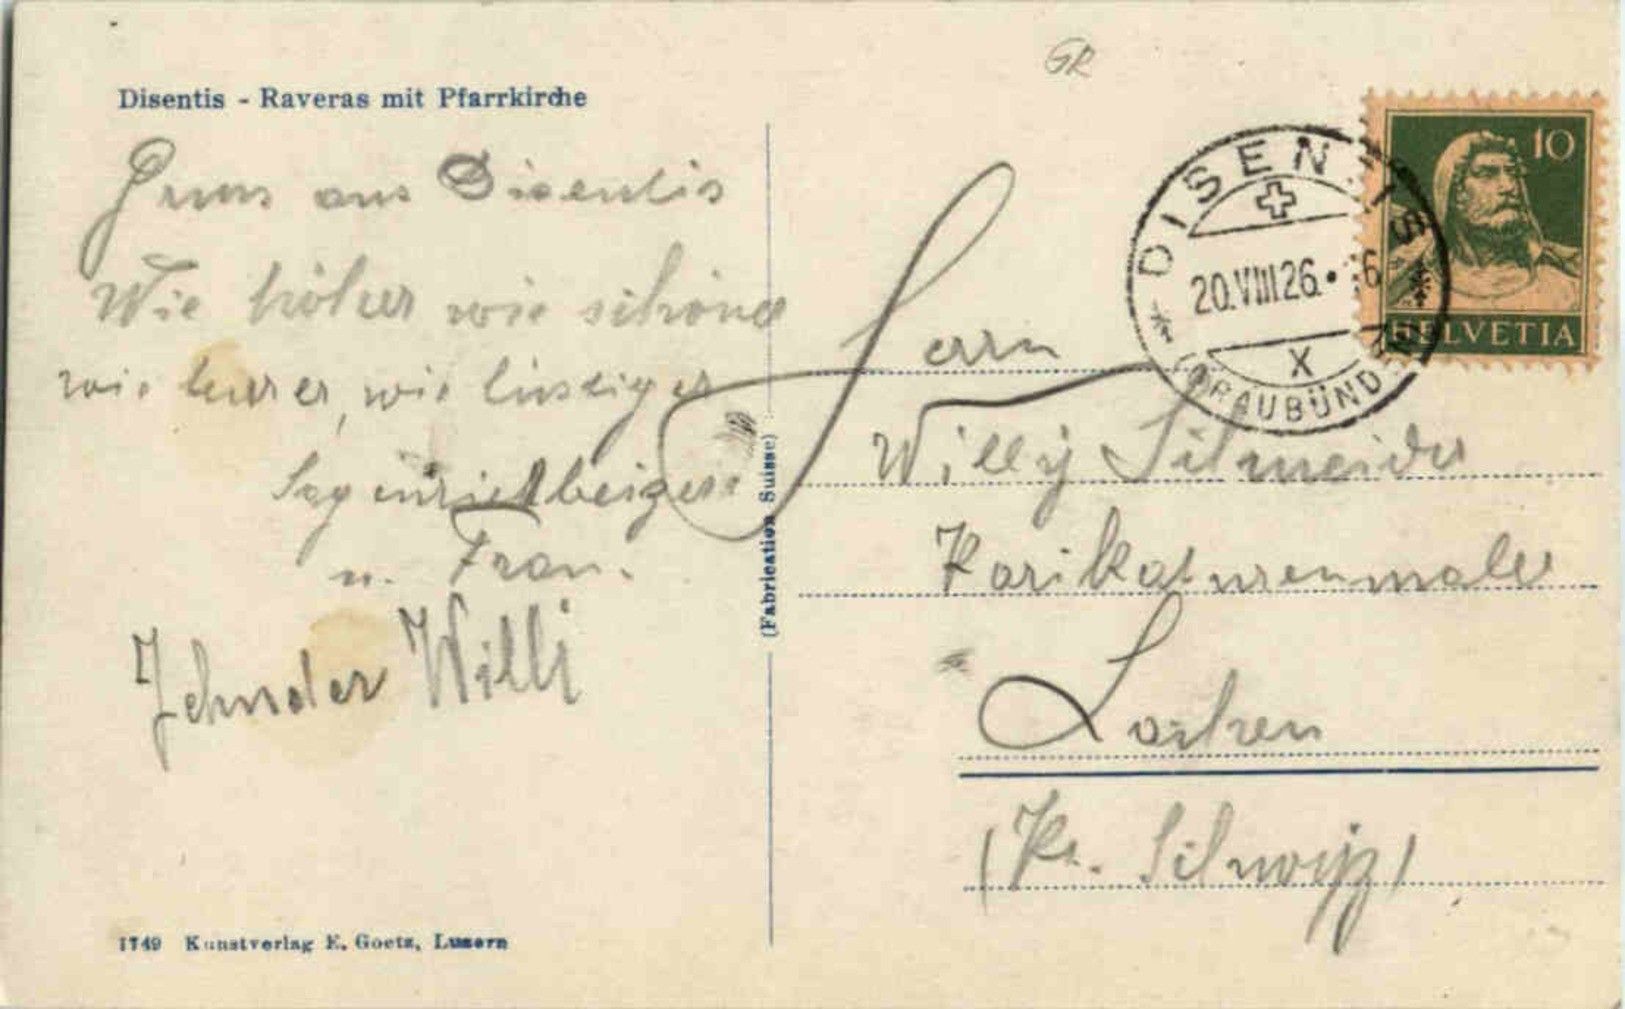 GR
Disentis - Raveras mit Pfarrkirche
Gruss aus Disentis
Wie höher wie schöner
wie
wie lustiger
u. Frau.
Zehnder Willi
1749 Kunstverlag E. Goetz, Luzern
(Fabrication Suisse)
10
HELVETIA
DISENTIS
20.VIII 26.
X
(GRAUBÜNDEN)
Herrn
Willy Schneider
Karikaturenmaler
Lachen
(Kt. Schwyz)